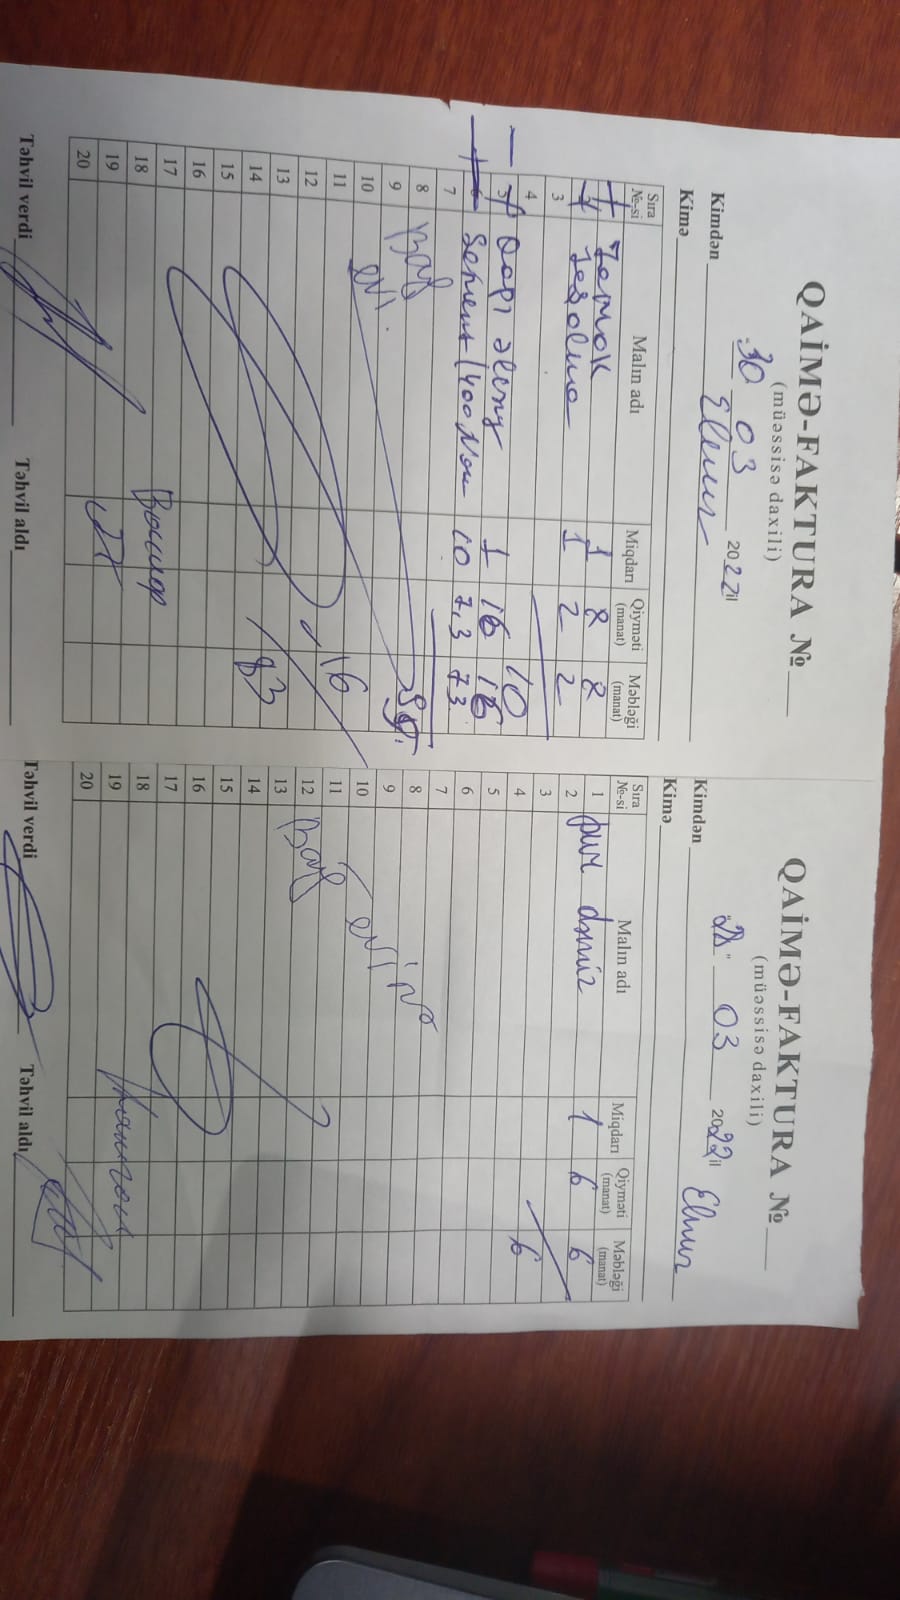 QAİMƏ-FAKTURA №
(müəssisə daxili)
30 03 2022 il
Kimdən Elnur
Kimə
Sıra №-si Malın adı Miqdarı Qiyməti (manat) Məbləği (manat)
1 Zamok 1 8 8
2 1 2 2
3
4 10
5 Qapı 1 16 16
6 Sement (400 10 7,3 73
7
8 Bağ
9
10 evi.
11
12 16
13
14 83
15
16
17
18
19
20
Təhvil verdi Təhvil aldı
QAİMƏ-FAKTURA №
(müəssisə daxili)
03 2022 il
Kimdən Elnur
Kimə
Sıra №-si Malın adı Miqdarı Qiyməti (manat) Məbləği (manat)
1
2 dəmir 1 6 6
3
4 6
5
6
7
8
9
10 evinə
11
12 Bağ
13
14
15
16
17
18
19
20
Təhvil verdi Təhvil aldı